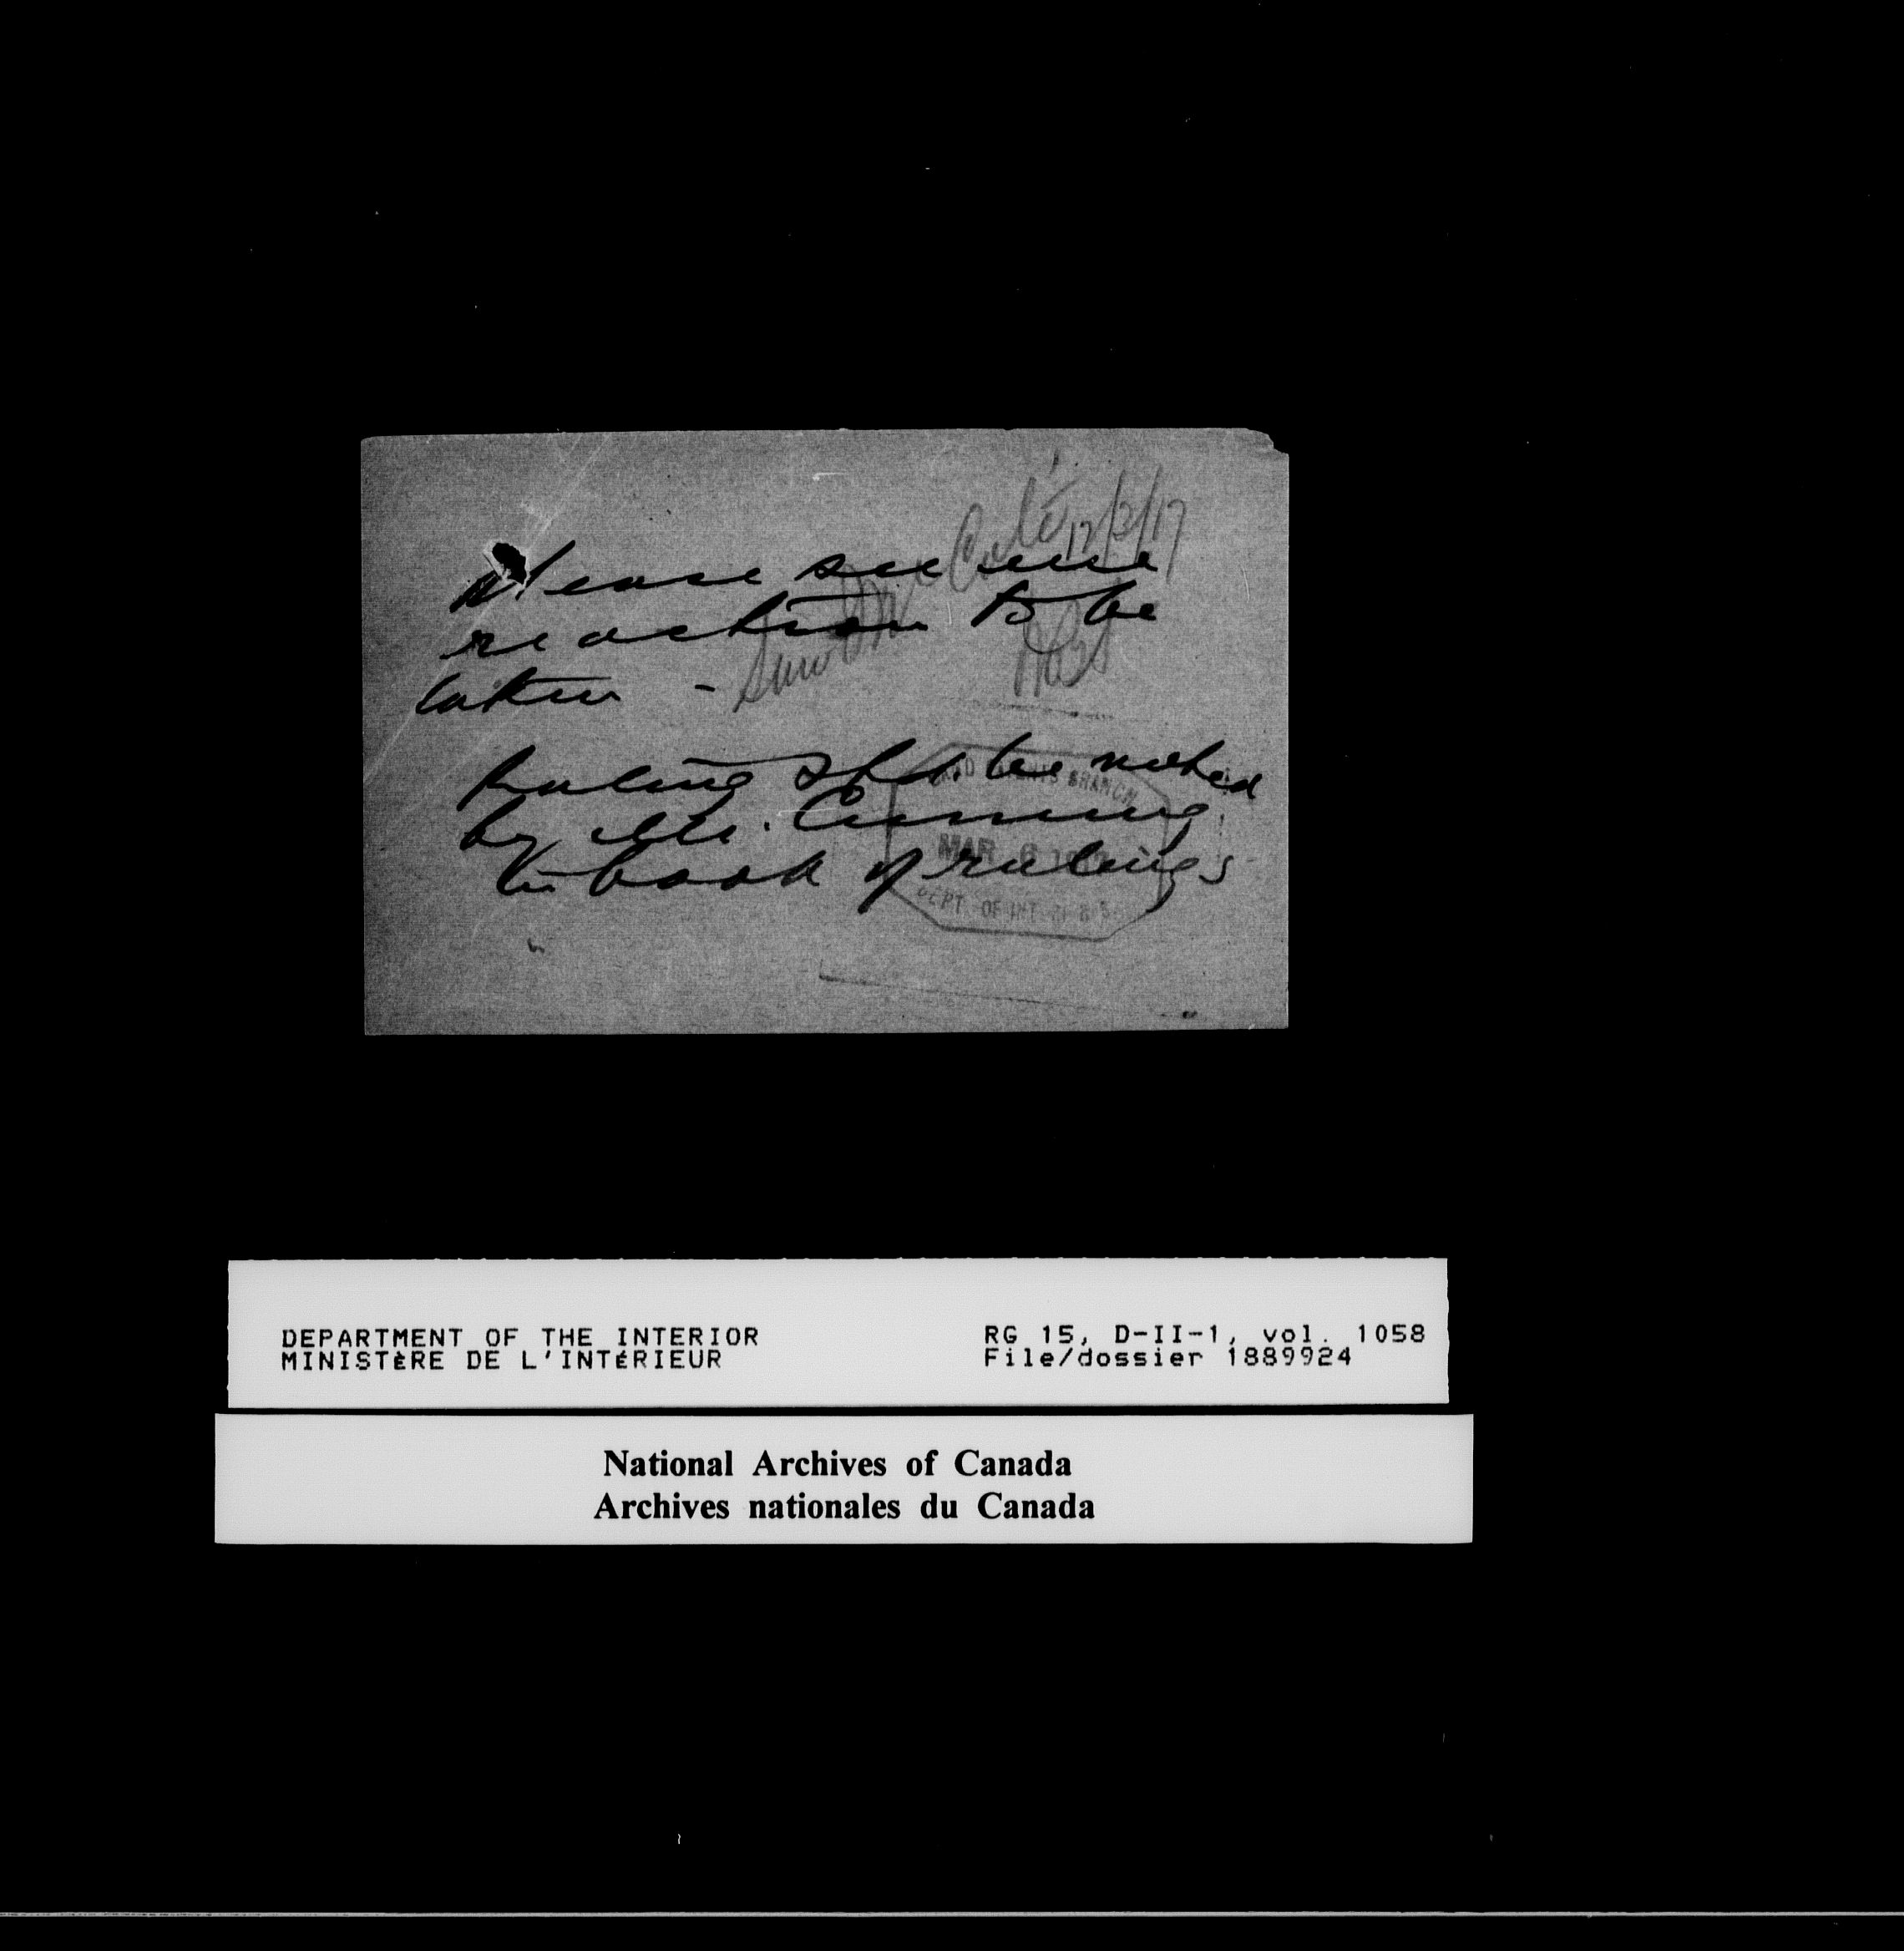 Saw Mr Coté 12/3/17
Please see me
re action to be
taken -
Ruling shd. be noted
by Mr. Cumming
in book of rulings
LAND PATENTS BRANCH
MAR 6 1917
DEPT. OF INTERIOR
DEPARTMENT OF THE INTERIOR
MINISTÈRE DE L'INTÉRIEUR
RG 15, D-II-1, vol. 1058
File/dossier 1889924
National Archives of Canada
Archives nationales du Canada